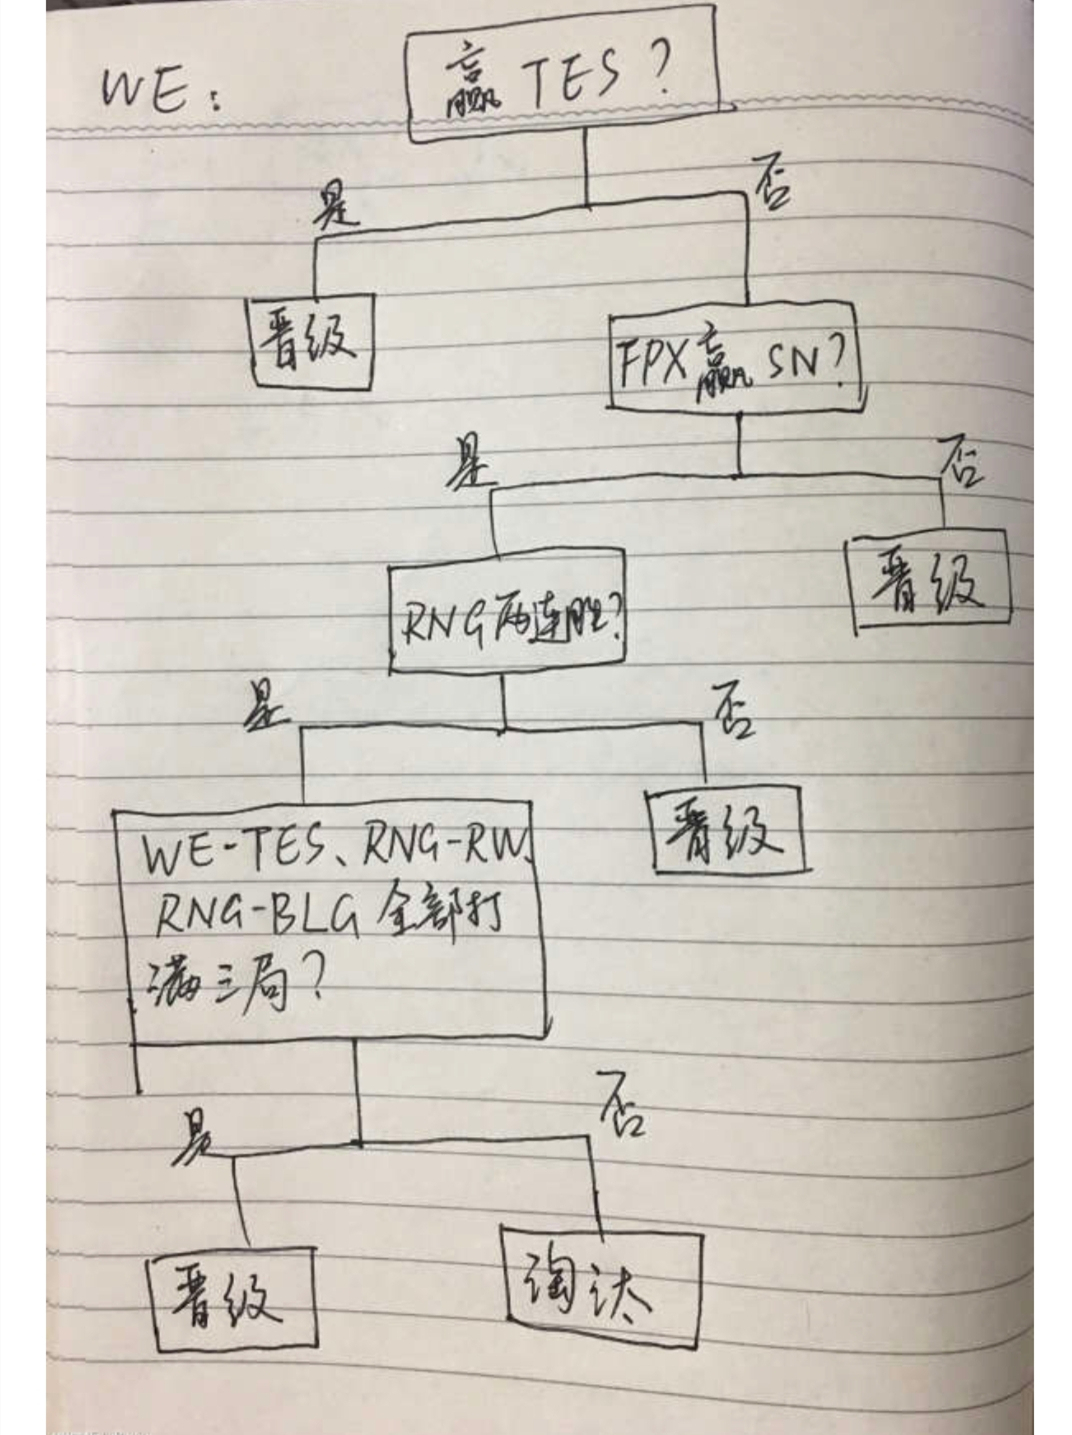 WE：
赢TES？
是
否
晋级
FPX赢SN？
是
否
RNG两连胜？
晋级
是
否
WE-TES、RNG-RW、
RNG-BLG全部打
满三局？
晋级
是
否
晋级
淘汰